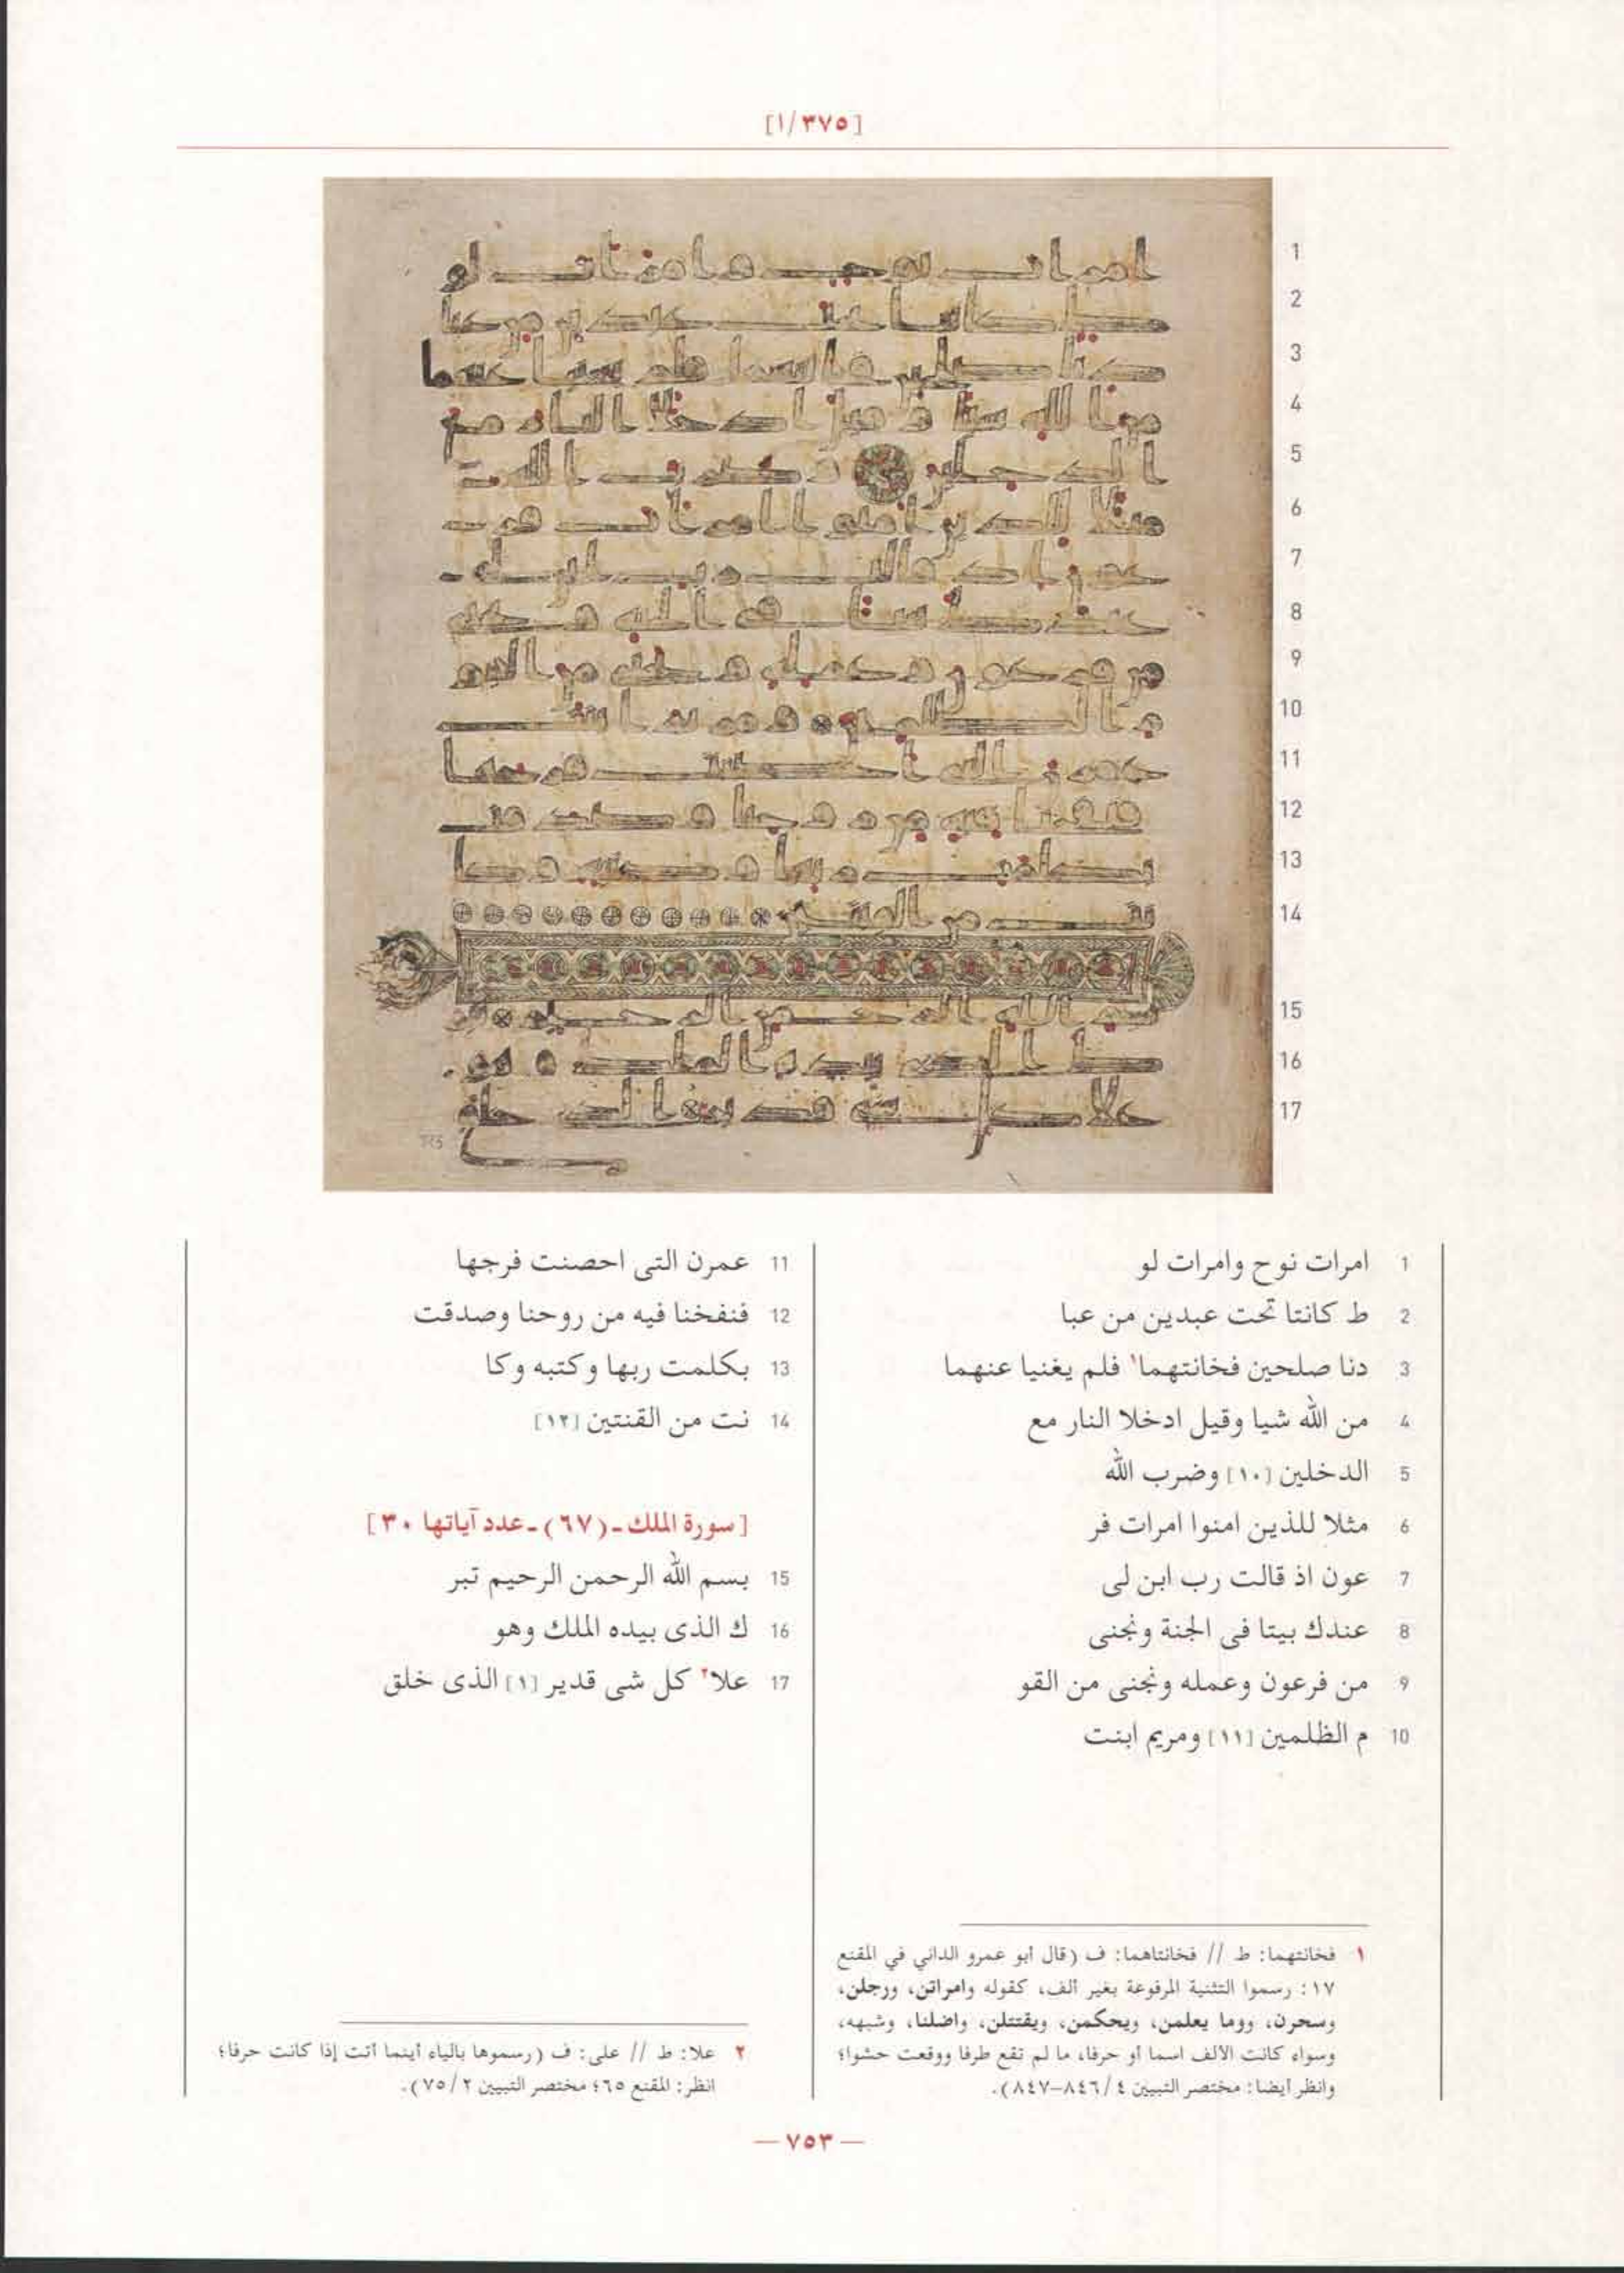 [٣٧٥/١]
1 امرات نوح وامرات لو
2 ط كانتا تحت عبدين من عبا
3 دنا صلحين فخانتهما١ فلم يغنيا عنهما
4 من الله شيا وقيل ادخلا النار مع
5 الدخلين [١٠] وضرب الله
6 مثلا للذين امنوا امرات فر
7 عون اذ قالت رب ابن لى
8 عندك بيتا فى الجنة ونجنى
9 من فرعون وعمله ونجنى من القو
10 م الظلمين [١١] ومريم ابنت
11 عمرن التى احصنت فرجها
12 فنفخنا فيه من روحنا وصدقت
13 بكلمت ربها وكتبه وكا
14 نت من القنتين [١٢]
[سورة الملك ـ (٦٧) ـ عدد آياتها ٣٠]
15 بسم الله الرحمن الرحيم تبر
16 ك الذى بيده الملك وهو
17 علا٢ كل شى قدير [١] الذى خلق
١ فخانتهما: ط // فخانتاهما: ف (قال أبو عمرو الداني في المقنع
١٧: رسموا التثنية المرفوعة بغير ألف، كقوله وامراتن، ورجلن،
وسحرن، ووما يعلمن، ويحكمن، ويقتتلن، واضلنا، وشبهه،
وسواء كانت الألف اسما أو حرفا، ما لم تقع طرفا ووقعت حشوا؛
وانظر أيضا: مختصر التبيين ٤/ ٨٤٦–٨٤٧).
٢ علا: ط // على: ف (رسموها بالياء أينما أتت إذا كانت حرفا؛
انظر: المقنع ٦٥؛ مختصر التبيين ٢/ ٧٥).
— ٧٥٣ —